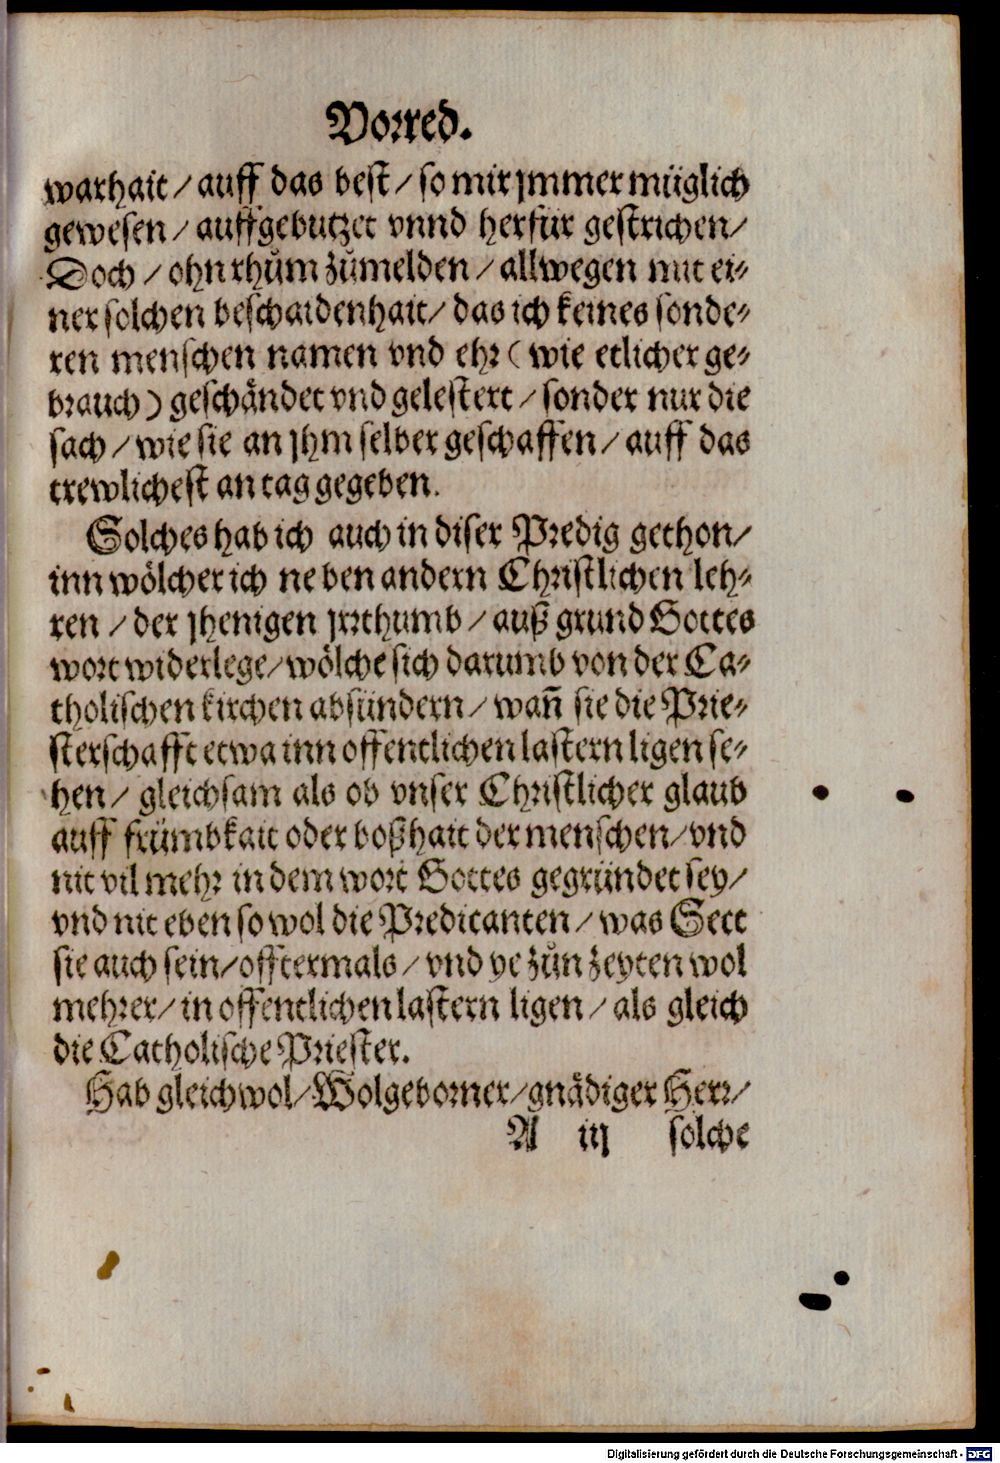 Vorred.
warhait / auff das best / so mir jmmer müglich
gewesen / auffgebutzet vnnd herfür gestrichen /
Doch / ohn rhům zůmelden / allwegen mit ei-
ner solchen beschaidenhait / das ich keines sonde-
ren menschen namen vnd ehr ( wie etlicher ge-
brauch ) geschändet vnd gelestert / sonder nur die
sach / wie sie an jhm selber geschaffen / auff das
trewlichest an tag gegeben.
Solches hab ich auch in diser Predig gethon /
inn wölcher ich neben andern Christlichen leh-
ren / der jhenigen jrrthumb / auß grund Gottes
wort widerlege / wölche sich darumb von der Ca-
tholischen kirchen absündern / wañ sie die Prie-
sterschafft etwa inn offentlichen lastern ligen se-
hen / gleichsam als ob vnser Christlicher glaub
auff frümbkait oder boßhait der menschen / vnd
nit vil mehr in dem wort Gottes gegründet sey /
vnd nit eben so wol die Predicanten / was Sect
sie auch sein / offtermals / vnd ye zůn zeyten wol
mehrer / in offentlichen lastern ligen / als gleich
die Catholische Priester.
Hab gleichwol / Wolgeborner / gnädiger Herr /
A iij solche
Digitalisierung gefördert durch die Deutsche Forschungsgemeinschaft - DFG